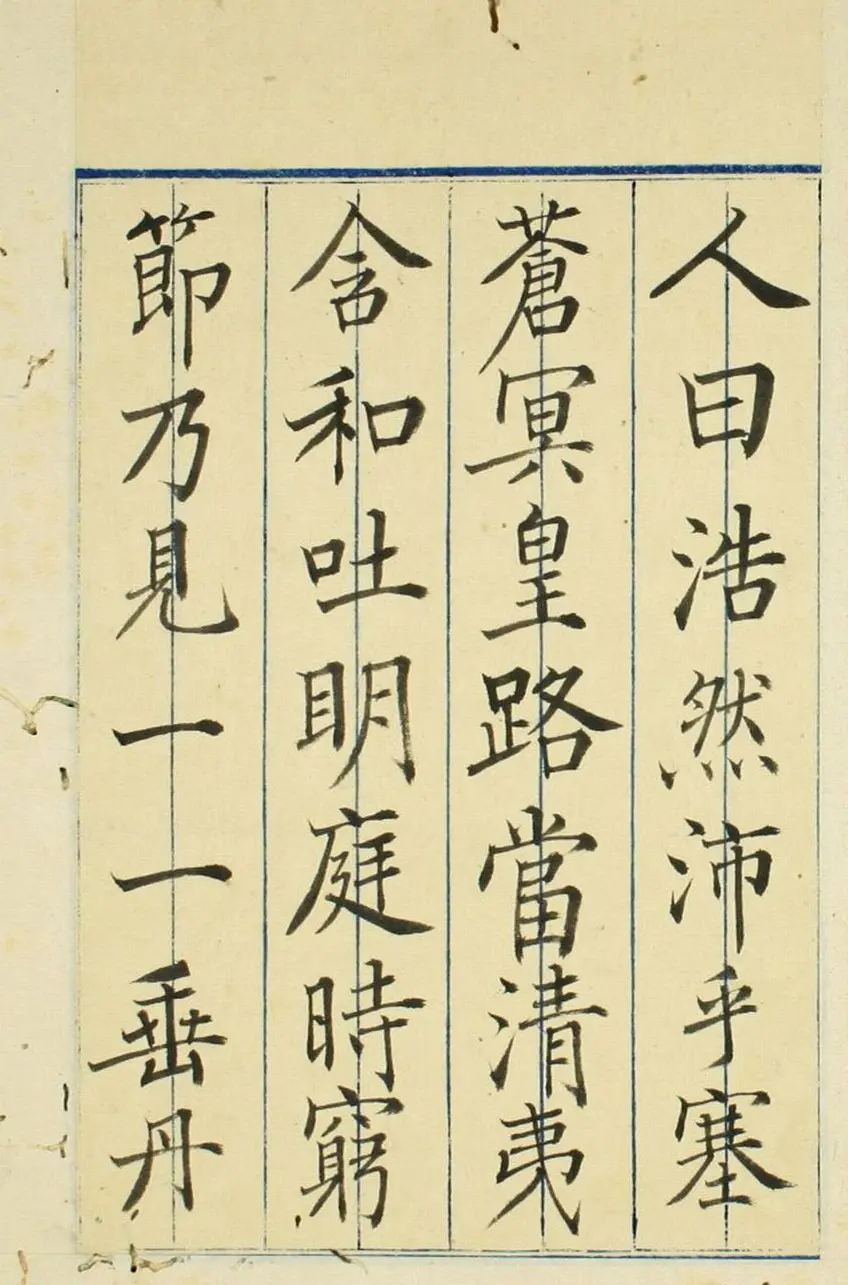 人曰浩然沛乎塞
蒼冥皇路當清夷
含和吐明庭時窮
節乃見一一垂丹